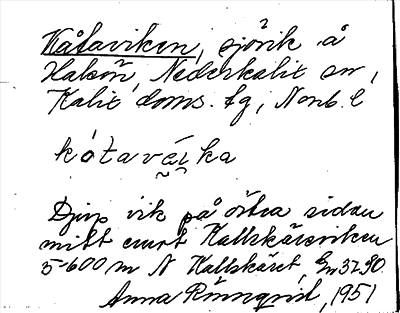 Kåtaviken, sjövik å
Halsön, Nederkalix sn,
Kalix doms. tg, Norrb. l
kótavǽika
Djup vik på östra sidan
mitt emot Hallskärsviken
5-600 m N Hallskäret,
Anna Rönnqvist, 1951